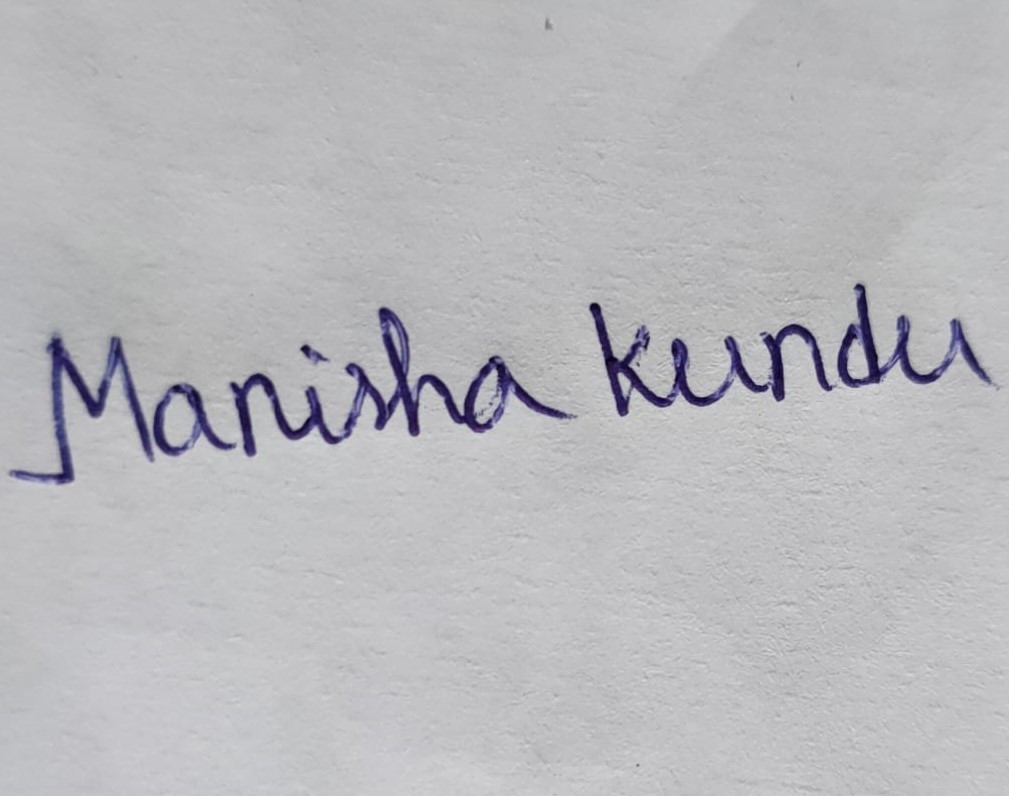 Manisha Kundu